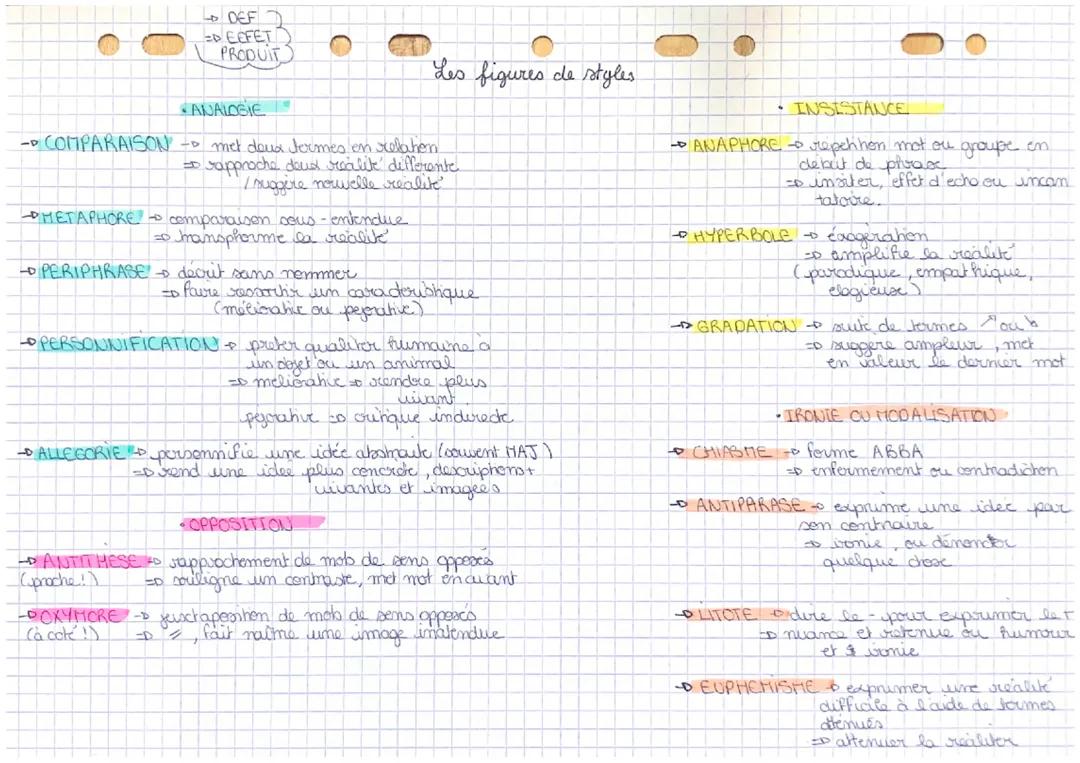 → DEF
⇒ EFFET
PRODUIT
Les figures de styles
• ANALOGIE
→ COMPARAISON → met deux termes en relation
⇒ rapproche deux realité differente
/ suggère nouvelle realité
→ METAPHORE → comparaison sous-entendue
⇒ transphorme la realité
→ PERIPHRASE → décrit sans nommer
⇒ faire ressortir un caracteristique
(méliorative ou pejorative)
→ PERSONNIFICATION → preter qualiter humaine à
un objet ou un animal
⇒ meliorative ⇒ rendre plus
vivant
péjorative ⇒ critique indirecte
→ ALLEGORIE → personnifie une idée abstraite (souvent MAJ)
⇒ rend une idee plus concrete, descriptions +
vivantes et imagées
• OPPOSITION
→ ANTITHESE → rapprochement de mots de sens opposés
(proche !) ⇒ souligne un contraste, met mot en avant
→ OXYMORE → juxtaposition de mots de sens opposés
(à coté !) ⇒〃, fait naitre une image inatendue
• INSISTANCE
→ ANAPHORE → repetition mot ou groupe en
debut de phrase
⇒ insiter, effet d'echo ou incan
tatoire.
→ HYPERBOLE → éxagération
⇒ amplifie la realité
(parodique, empathique,
elogieuse)
→ GRADATION → suite de termes ↗ ou ↘
⇒ suggère ampleur, met
en valeur le dernier mot
• IRONIE OU MODALISATION
→ CHIASME → forme ABBA
⇒ enfermement ou contradiction
→ ANTIPARASE → exprime une idée par
son contraire
⇒ ironie, ou dénoncer
quelque chose
→ LITOTE → dire le - pour exprimer le +
⇒ nuance et retenue ou humour
et ironie
→ EUPHEMISME → exprimer une réalité
difficile à l'aide de termes
attenués
⇒ attenuer la realiter